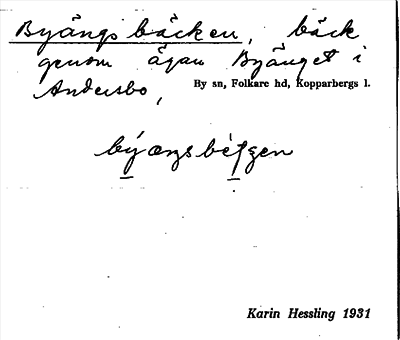 Byängsbäcken, bäck
genom ägan Byänget i
Andersbo,
By sn, Folkare hd, Kopparbergs l.
Karin Hessling 1931